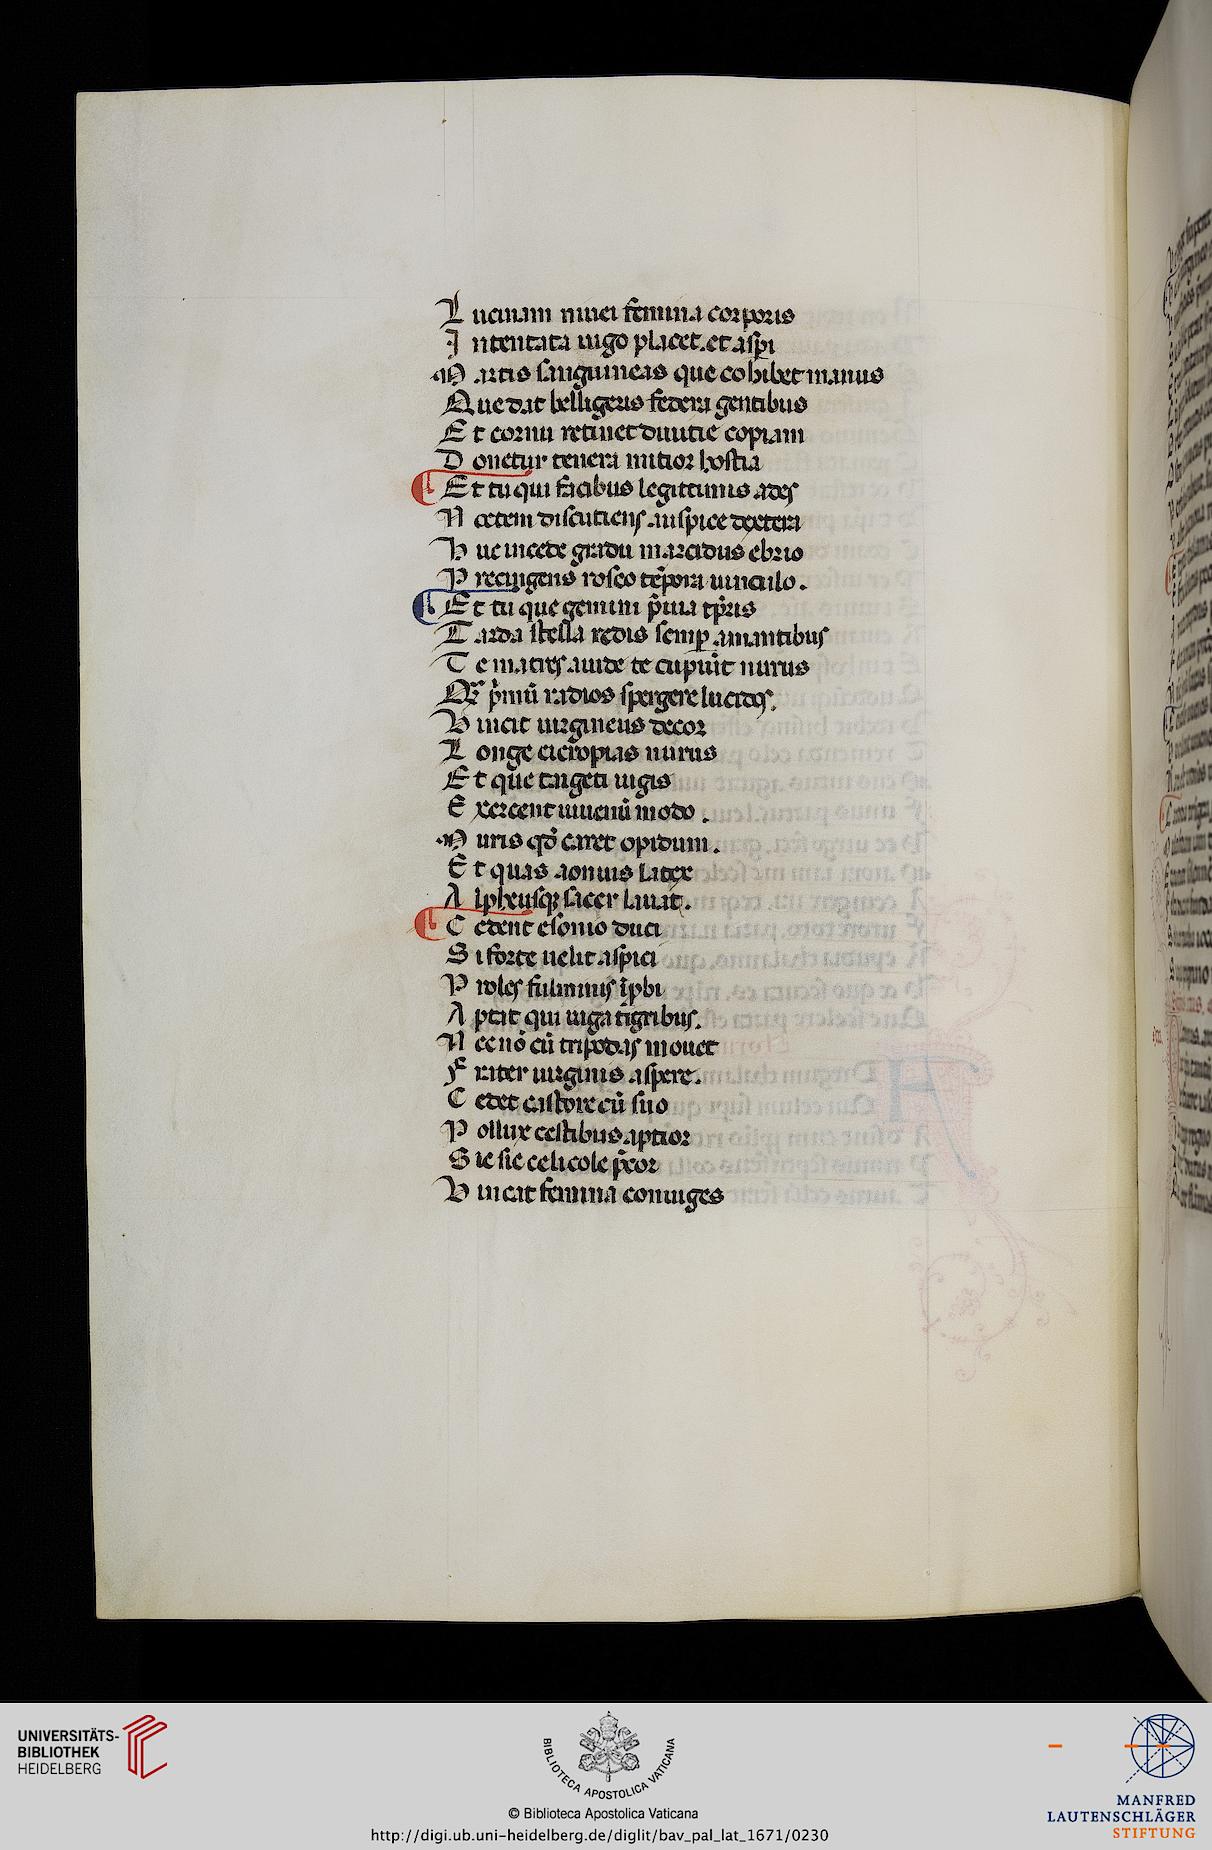 Lucinam niuei femina corporis
Intentata iugo placet. et aspi
Martis sanguineas que cohibet manus
Que dat belligeris federa gentibus
Et cornu retinet diuitie copiam
Donetur tenera mitior hostia
Et tu qui facibus legittimis ades
Noctem discutiens auspice dextera
Huc incede gradu marcidus ebrio
Precingens roseo tēpora uinculo.
Et tu que gemini p̄uia tp̄ris
Tarda stella redis semp amantibus
Te matres auide te cupiūt nurus
Qr p̄mū radios spergere lucidos.
Vincit uirgineus decor
Longe cicropias nurus
Et que taigeti iugis
Exercent iuuenū modo.
Muris qd̄ caret opidum.
Et quas aonius latex
Alpheusq sacer lauat.
Cedent esonio duci
Si forte uelit aspici
Proles fulminis īpbi
Aptat qui iuga tigribus.
Nec nō cū tripodas mouet
Frater uirginis aspere.
Cedet castore cū suo
Pollux cestibus aptior
Sic sic celicole p̄cor
Vincat femina coniuges
UNIVERSITÄTS-
BIBLIOTHEK
HEIDELBERG
BIBLIOTECA APOSTOLICA VATICANA
© Biblioteca Apostolica Vaticana
http://digi.ub.uni-heidelberg.de/diglit/bav_pal_lat_1671/0230
MANFRED
LAUTENSCHLÄGER
STIFTUNG